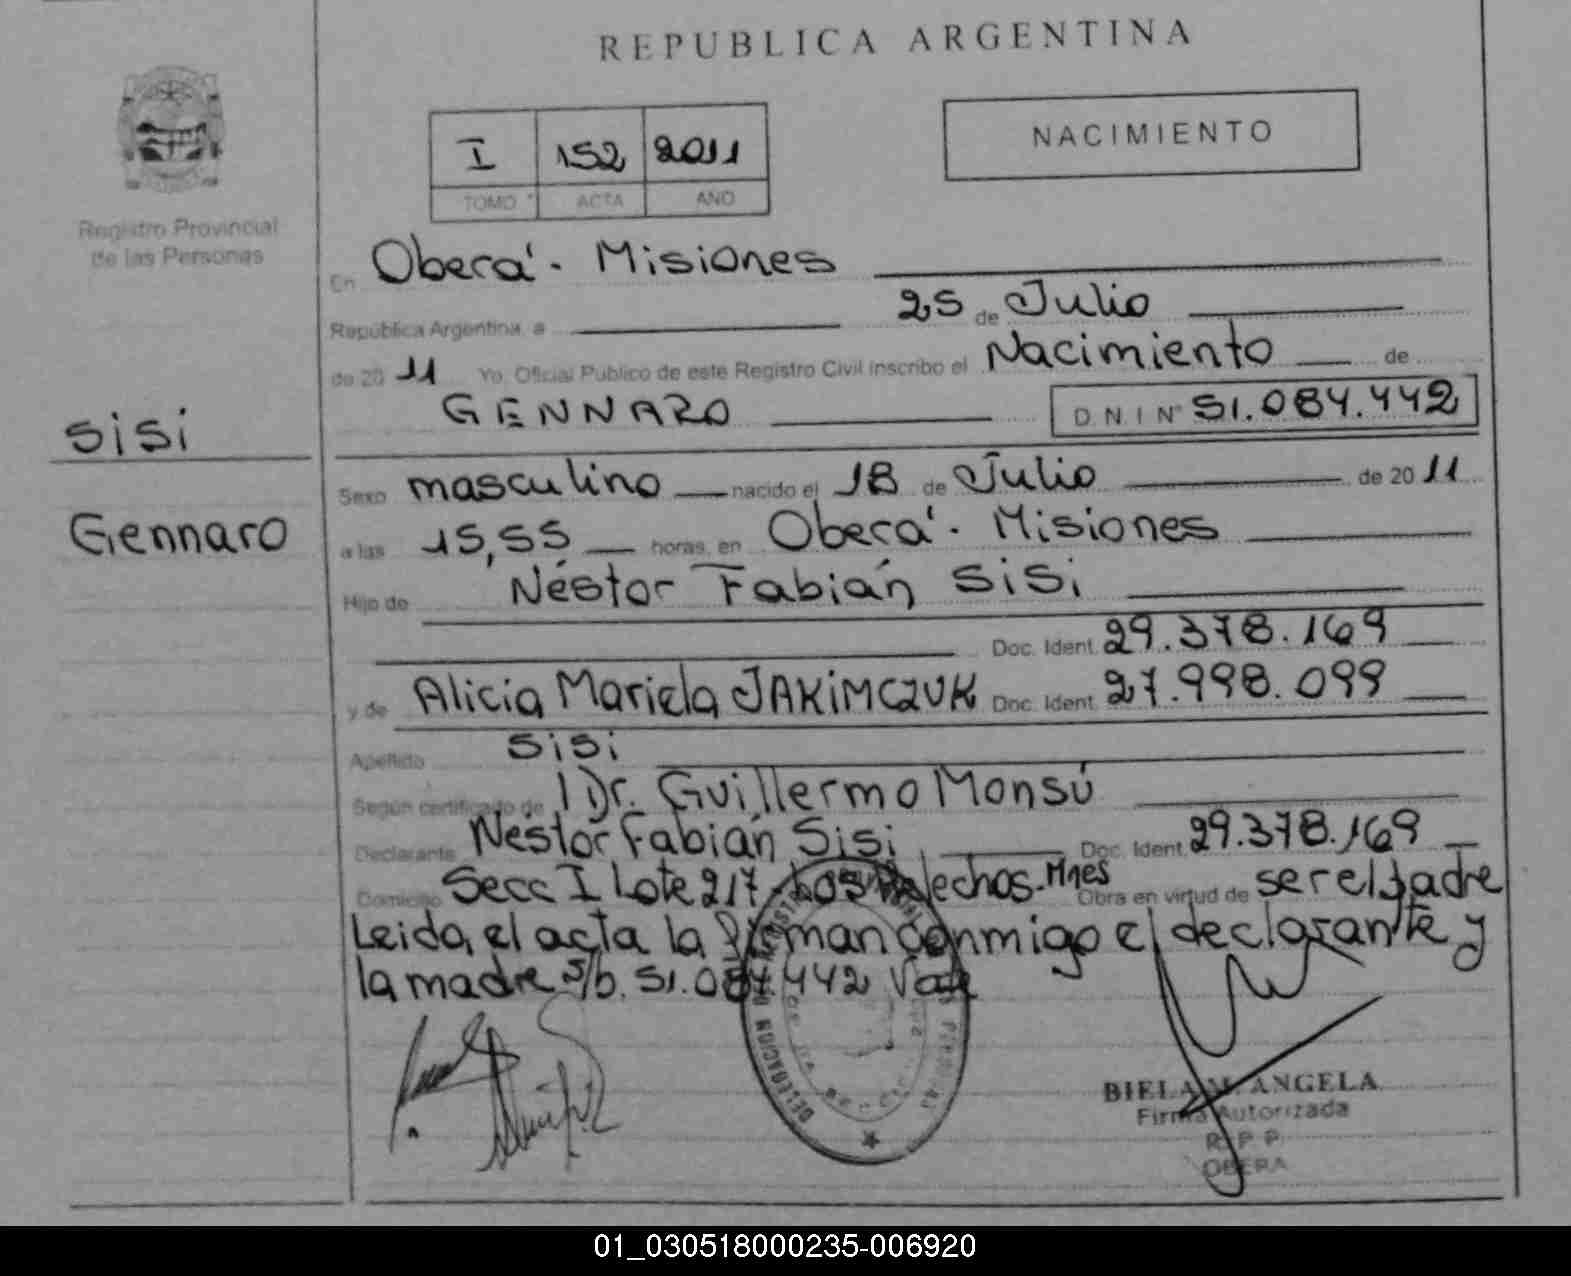 REPUBLICA ARGENTINA
I 152 2011
TOMO ACTA AÑO
NACIMIENTO
Registro Provincial
de las Personas
En Oberá - Misiones
República Argentina, a 25 de Julio
de 20 11 Yo, Oficial Público de este Registro Civil inscribo el Nacimiento de
GENNARO D.N.I Nº 51.084.442
Sisi
Gennaro
Sexo masculino nacido el 18 de Julio de 20 11
a las 15,55 horas, en Oberá - Misiones
Hijo de Néstor Fabián Sisi
Doc. Ident. 29.378.169
y de Alicia Mariela JAKIMCZUK Doc. Ident. 27.998.099
Apellido Sisi
Según certificado de Dr. Guillermo Monsú
Declarante Néstor Fabián Sisi Doc. Ident. 29.378.169
Domicilio Secc I Lote 217 - Los Helechos - Mnes Obra en virtud de ser el padre
Leida el acta la firman conmigo el declarante y
la madre s/b. 51.084.442 Vale
DELEGACION
BIELA M. ANGELA
Firma Autorizada
R.P.P.
OBERA
01_030518000235-006920